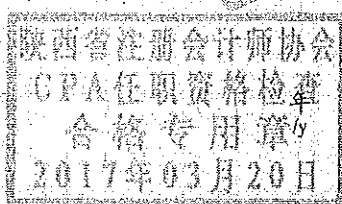 陕西省注册会计师协会
CPA任职资格检查
年
合格专用章
/y
2017年03月20日